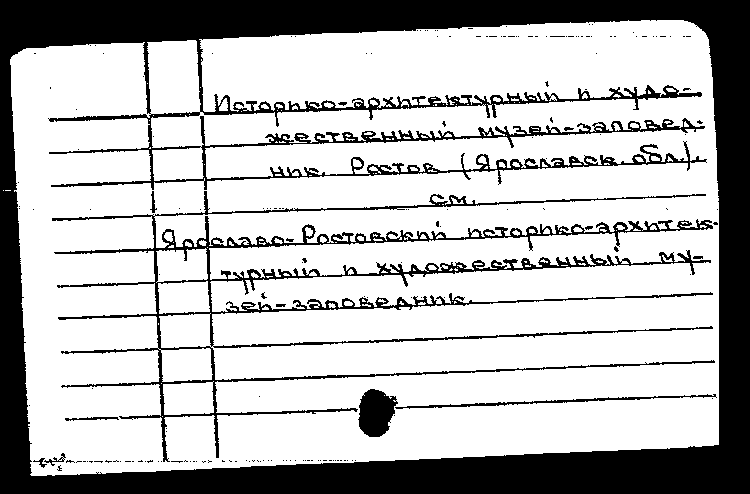 Историко-архитектурный и худо-
жественный музей-заповед-
ник. Ростов (Ярославск. обл.).
см.
Ярославо-Ростовский историко-архитек-
турный и художественный му-
зей-заповедник.